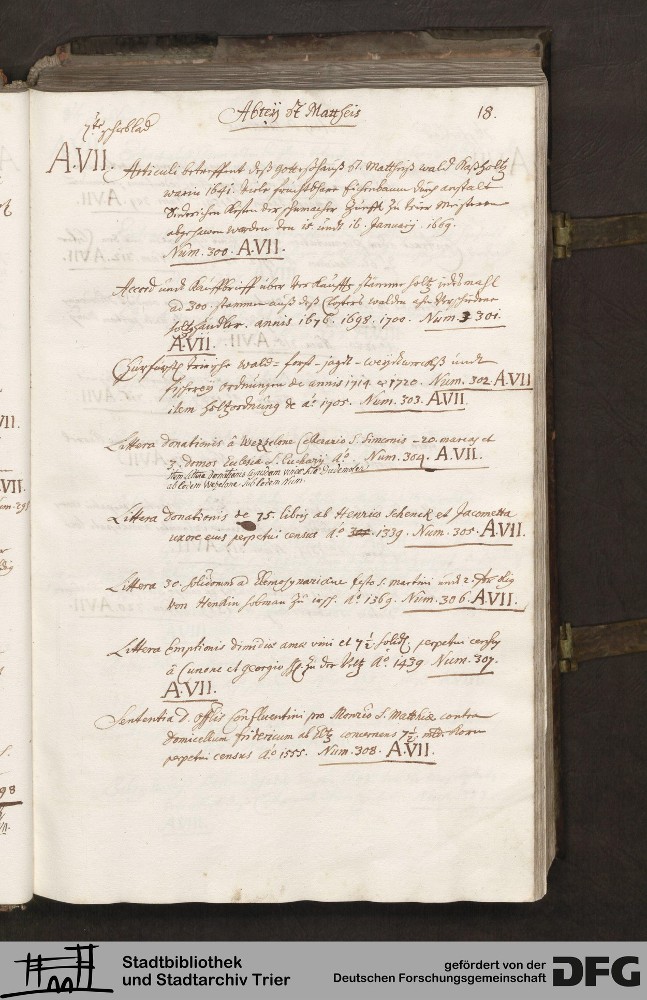 Abteÿ St Mattheis 18.
7te schublad
A.VII. Articuli betreffent deß gotteßhauß St. Mattheiß wald
warin 1641. viele fruchtbare Eichenbaum durch anstalt
der schumacher Zunfft zu trier
abgehawen worden den 15 undt 16. January. 1669.
Num. 300. A.VII.
Accord und Kauffbrieff über verkauffte stämme holtz
ad 300. stammen auß deß Closters walden ahn verschiedene
holtzhändler. annis 1676. 1698. 1700. Num. 301.
A.VII.
Churfürstl triersche wald= forst- jagdt- weydtwercks undt
fischereÿ ordnungen de annis 1714 et 1720. Num. 302. A.VII
item holtzordnung de ao 1705. Num. 303. A.VII.
Littera donationis à Wezzelone Cellerario S. Simeonis 20. marcas et
3. domos Ecclesiæ S. Eucharÿ ao. Num. 304. A.VII.
Item littera donationis
ab eodem Wezelone. sub eodem Num.
Littera donationis de 75. libris ab Henrico schenck et Jacometta
uxore eius perpetui census ao 1339. Num. 305. A.VII.
Littera 30. solidorum ad Elemosynariam festo S. martini undt 2.
von Henckin hobman zu ao. 1369. Num. 306. A.VII.
Littera Emptionis dimidiæ amæ vini et 7½ solid. perpetui census
à Cunone et georgio zu der Veltz ao. 1439 Num. 307.
A.VII.
Sententia D. offlis Confluentini pro Monrio S. Matthiæ contra
Domicellum fridericum ab Eltz concernens 7½
perpetui census ao 1555. Num. 308. A.VII.
VII.
VII.
98
Stadtbibliothek
und Stadtarchiv Trier
gefördert von der
Deutschen Forschungsgemeinschaft
DFG